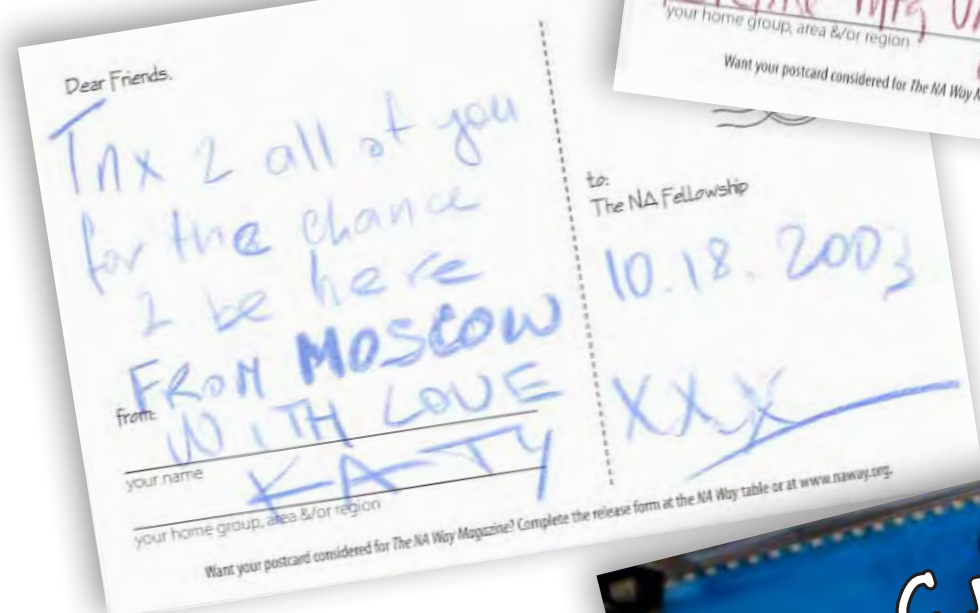 your home group, area &/or region
Want your postcard considered for The NA Way
Dear Friends,
Tnx 2 all of you
for the chance
2 be here
FROM MOSCOW
from:
WITH LOVE
your name
KATY
your home group, area &/or region
to:
The NA Fellowship
10.18.2003
XXX
Want your postcard considered for The NA Way Magazine? Complete the release form at the NA Way table or at www.naway.org.